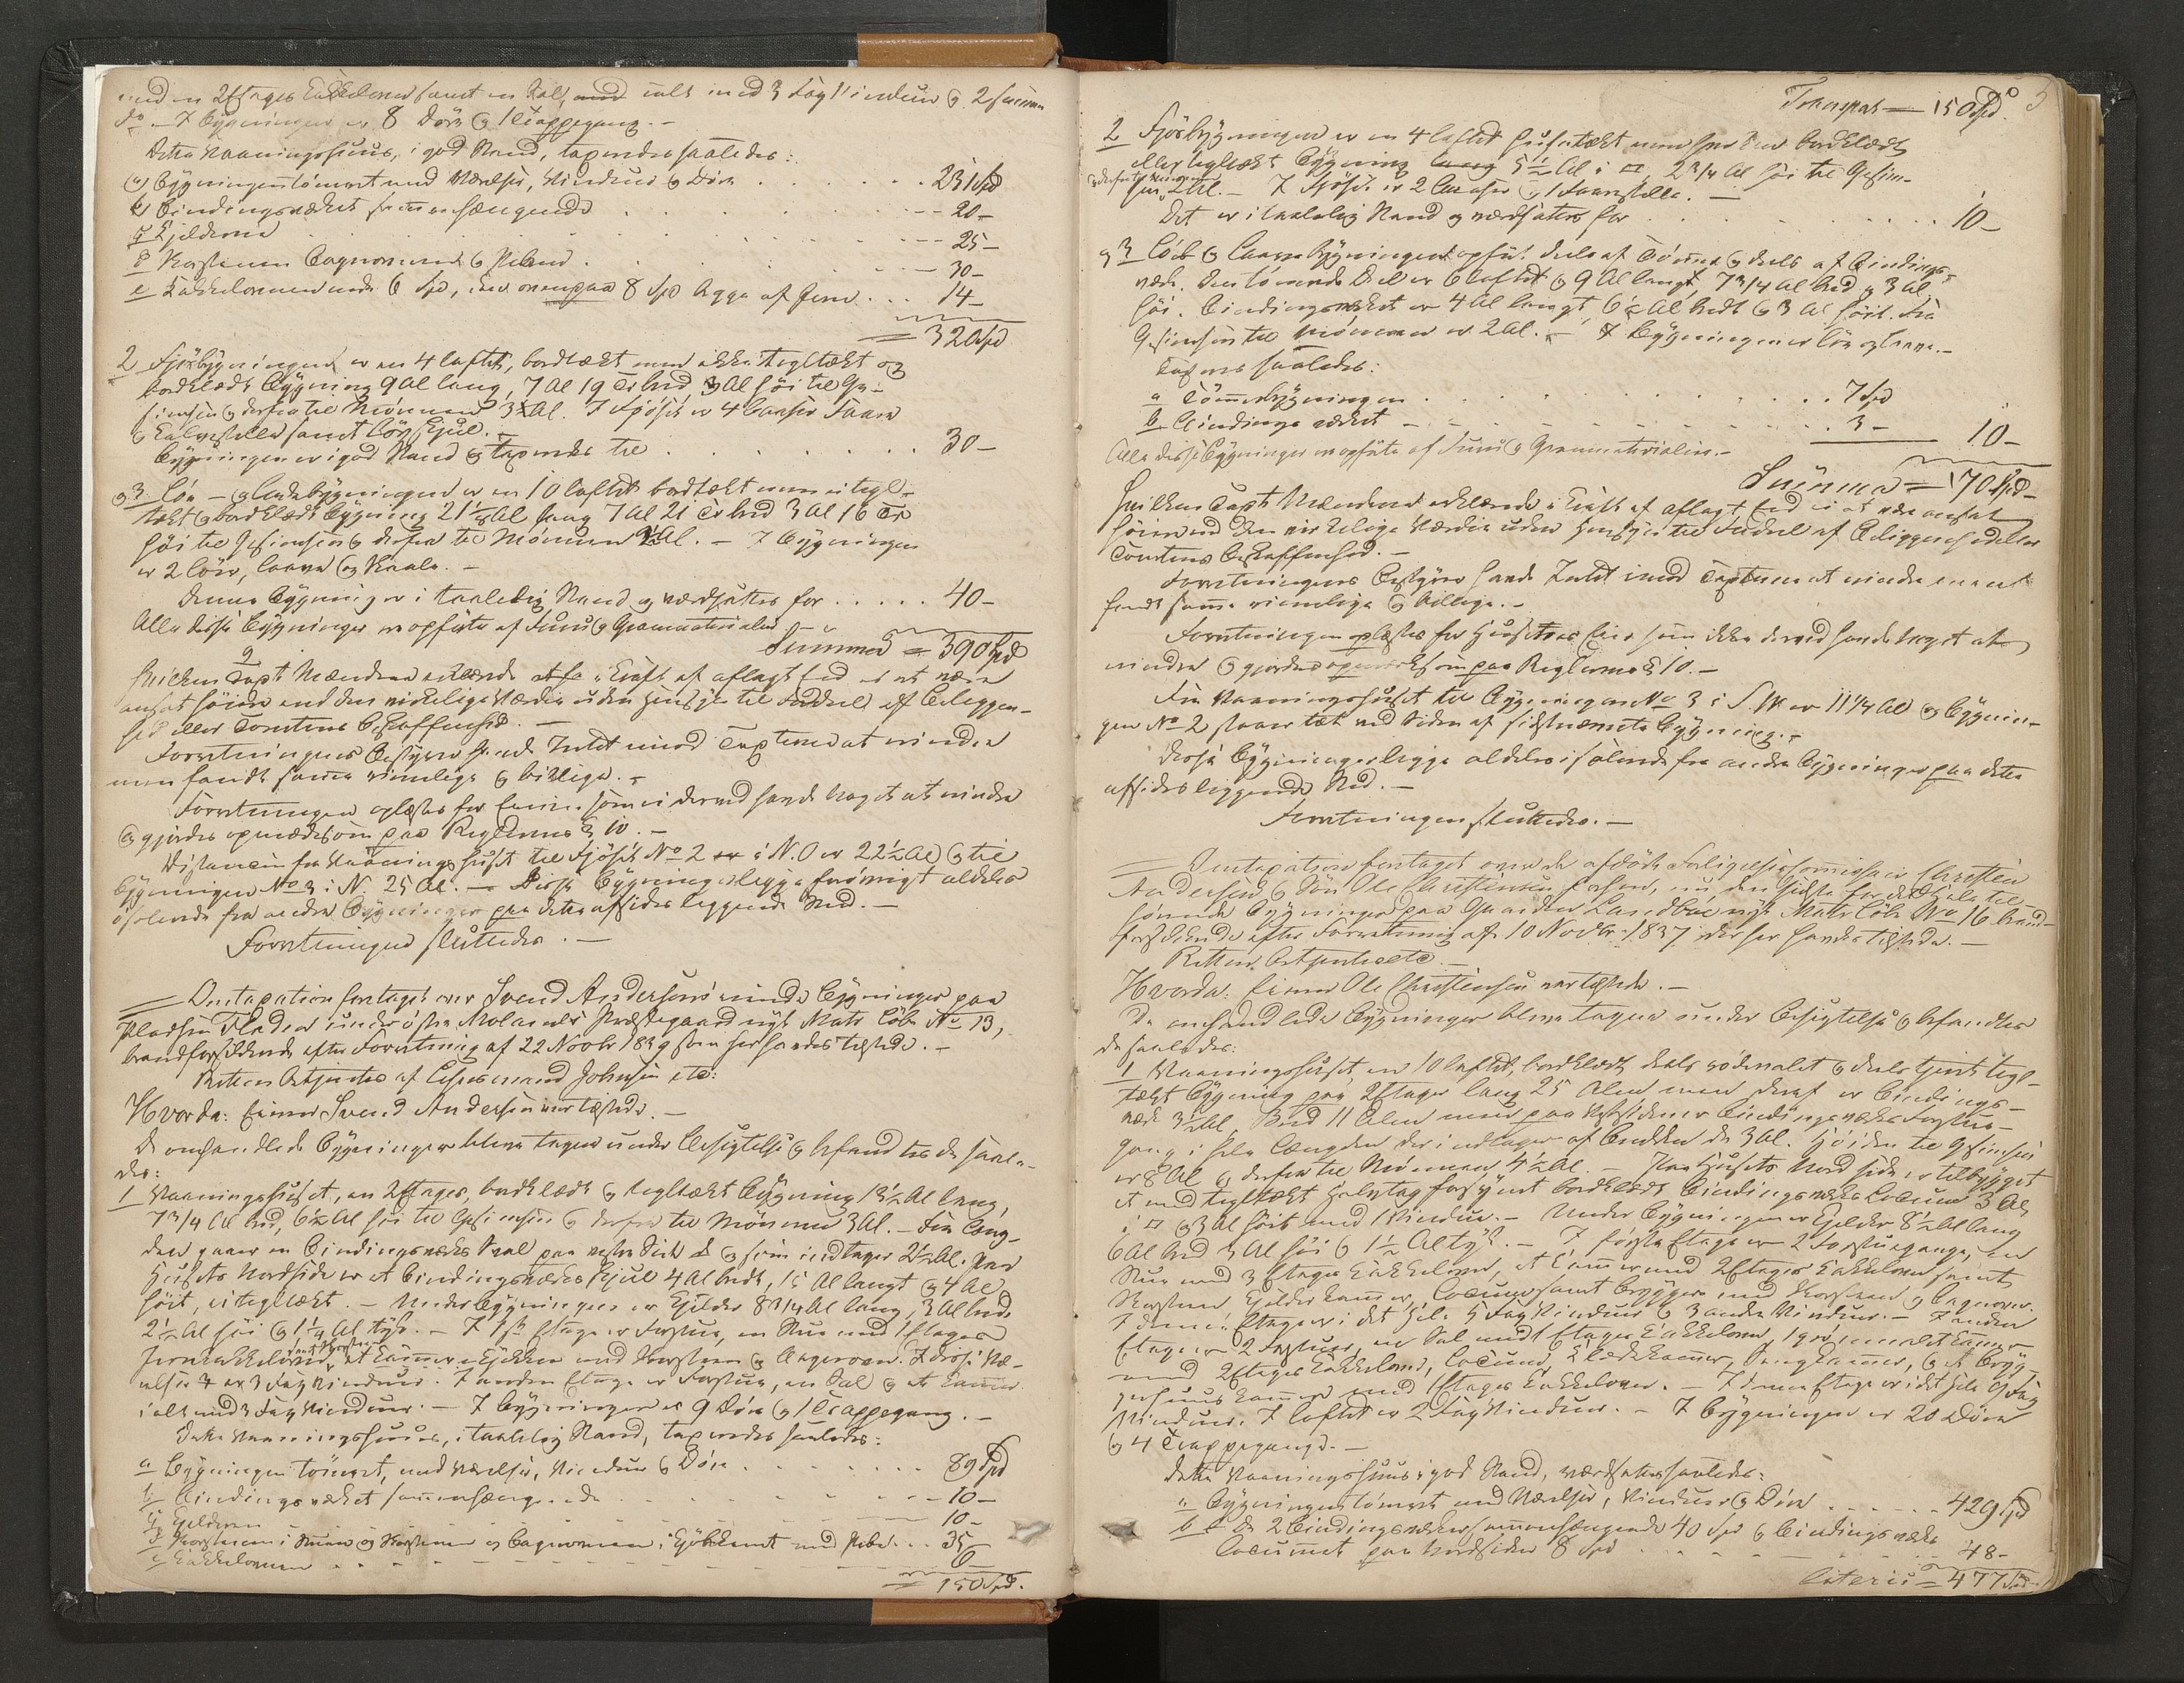 med en 2 Etages Kakkelovn samt en Kalf, med ialt med 3 Fag Vinduer og 2 smaae
do. – I Bygningen er 8 Döre og 1 Trappegang. –
Dette Vaaningshuus, i god Stand, taxeredes saaledes:
a, Bygningens tömret med Værelser, Vinduer og Döre . . . 231 Spd
b, Bindingsværket sammenhængende . . . 20 –
c Kjelderne . . . 25 –
d Skorstenen Bagerovnene og Piben . . . 30 –
e Kakkelovnene . . . 6 Spd, 8 Spd begge af Jern . . . 14 –
= 320 Spd
2 Fjösbygningen er en 4 laftet, bordtækt men ikke tegltækt og
bordklædt Bygning 9 Al lang, 7 Al 19 Tr bred 3 Al höi til Ge-
simsen og derfra til Mönnen 3½ Al. I Fjöset er 4 Baaser Faare
og Kalvestelle samt Köy Skjul. –
Bygningen er i god Stand og taxeredes til . . . 30 –
og 3 Löe – og Ladebygningen er en 10 laftet bordtækt men ei tegl-
tækt og bordklædt Bygning 21⅛ Al lang 7 Al 21 Tr bred 3 Al 16 Tr
höi til Gesimsen og derfra til Mönnen 3½ Al. – I Bygningen
er 2 Löer, Laave og Staale. –
Denne Bygning er i taalelig Stand og værdsættes for . . . 40 –
Alle disse Bygninger er opförte af Furu og Granmaterialer –
Summa = 390 Spd
Hvilken Taxt Mændene erklærede i Kraft af aflagt Eed ei at være
ansat höiere end den virkelige Værdie uden Hensyn til Fordeel af Beliggen-
hed eller Tomtens Beskaffenhed. –
Forretningens Bestyrer havde Intet imod Taxterne at erindre
men fandt samme rimelige og billige. –
Forretningen oplæstes for Eieren som ei derved havde Noget at erindre
og gjordes opmærksom paa Reglernes § 10. –
Distancen fra Vaaningshuset til Fjöset No 2 er i N.O er 22½ Al og til
Bygningen No 3 i N. 25 Al. – Disse Bygninger ligge forövrigt aldeles
isolerede fra andre Bygninger paa dette afsides liggende Sted. –
Forretningen sluttedes. –
Omtaxation foretaget over Svend Andersens eiende Bygninger paa
Pladsen Fladen under östre Molands Præstegaard nye Matr Löbe No 13,
brandforsikrede efter Forretning af 22 Novbr 1839 som her havdes tilstede. –
Retten betjentes af Lensmand Johnsen etc:
Hvorda: Eieren Svend Andersen var tilstede. –
De omhandlede Bygninger bleve tagne under Besigtelse og befandtes de saale-
des:
1 Vaaningshuset, en 2 Etages, bordklædt og tegltækt Bygning 13½ Al lang,
7¾ Al bred, 6½ Al höi til Gesimsen og derfra til Mönnen 3 Al. – Fra Læng-
den gaaer en Bindingsværks Sval paa östre Side og som indtager 2½ Al. Paa
Husets Nordside er et Bindingsværks Skjul 4 Al bredt, 15 Al langt og 4 Al
höit, ei tegltækt. – Under Bygningen er Kjelder 8¾ Al lang, 3 Al bred
2½ Al höi og 1¼ Al tyk. – I 1ste Etage er Forstue, en Stue med 1 Etages
Jernkakkelovn samt Skorsten, et Kammer, Kjökken med Skorsten og Bagerovn. I disse Væ-
relser er 3 Fag Vinduer. I anden Etage er Forstue, en Sal og et Kammer
ialt med 3 Fag Vinduer. – I Bygningen er 9 Döre og 1 Trappegang. –
Dette Vaaningshuus, i taalelig Stand, taxeredes saaledes:
a Bygningen tömret, med Værelser, Vinduer og Döre . . . 89 Spd
b Bindingsværket sammenhængende . . . 10 –
c Kjelderen . . . 10 –
d Skorstenen i Stuen og Skorstenen og Bagerovnen i Kjökkenet med Pibe . . . 35
e Kakkelovnen . . . 6
= 150 Spd.
Transport – 150 Spd. 3
2 Fjösbygningen er en 4 laftet
eller tegltækt Bygning lang 5½ Al i □, 2¾ Al höi til Gesim-
sen, 2 Al. – I Fjöset er 2 Baaser og 1 Faarestelle. –
Det er i taalelig Stand og værdsættes for . . . 10 –
og 3 Löe og Laavebygningen opfört deels af Tömmer og deels af Bindings-
værk. Den tömrede Deel er 6 laftet og 9 Al langt, 7¾ Al bred og 3 Al
höi. Bindingsværket er 4 Al langt, 6½ Al bredt og 3 Al höit. Fra
Gesimsen til Mönnen er 2 Al. – I Bygningen er Löe og Laave. –
Taxeres saaledes:
a Tömmerbygningen . . . 7 Spd
b Bindingsværket . . . 3 – 10 –
Alle disse Bygninger er opförte af Furu og Granmaterialier. –
Summa = 170 Spd –
Hvilken Taxt Mændene erklærede i Kraft af aflagt Eed ei at være ansat
höiere end den virkelige Værdie uden Hensyn til Fordeel af Beliggenheden eller
Tomtens Beskaffenhed. –
Forretningens Bestyrer havde Intet imod Taxterne at erindre men at
fandt samme rimelige og billige. –
Forretningen oplæstes for Husets Eier som ikke derved havde Noget at
erindre og gjordes opmærksom paa Reglernes § 10. –
Fra Vaaningshuset til Bygningen No 3 i S.W er 11¼ Al og Bygnin-
gen No 2 staaer tæt ved Siden af sidstnævnte Bygning. –
Disse Bygninger ligge aldeles isolerede fra andre Bygninger paa dette
afsides liggende Sted. –
Forretningen sluttedes. –
Omtaxation foretaget over de afdöde Forligelsescommissair Christen
Andersen og Sön Ole Christensen nu den sidste for det Hele til-
hörende Bygninger paa Gaarden Landböe nye Matr Löbe No 16 brand-
forsikrede efter Forretning af 10 Novbr 1837 der her havdes tilstede. –
Retten betjentes etc. –
Hvorda: Eieren Ole Christensen var tilstede. –
De omhandlede Bygninger bleve tagne under Besigtelse og befandtes
de saaledes:
1 Vaaningshuset en 10 laftet, bordklædt deels rödmalet og deels tjæret tegl-
tækt Bygning paa 2 Etager lang 25 Alen men deraf er Bindings-
værk 3½ Al. Bred 11 Alen men paa Vestsiden er Bindingsværks Forstue-
gang i hele Længden der indtager af Bredden de 3 Al. Höiden til Gesimsen
er 8 Al og derfra til Mönnen 4½ Al. – Paa Husets Nordside er tilbygget
et med tegltækt Halvtag forsynet bordklædt Bindingsværks Locum 3 Al
i □ og 3 Al höit med 1 Vindue. – Under Bygningen er Kjelder 8½ Al lang
6 Al bred 3 Al höi og 1½ Al tyk. – I förste Etage er 2 Forstuegange, en
Stue med 3 Etages Kakkelovn, et Kammer med 2 Etages Kakkelovn samt
Skorsten, Kjelderkammer, Locum samt Bryggers med Skorsten og Bagerovn.
I denne Etage er i det Hele 5 Fag Vinduer og 3 andre Vinduer. – I anden
Etage er 2 Forstuer, en Sal med 1 Etages Kakkelovn, 1 Kammer
med 2 Etages Kakkelovn, Locum, Klædekammer, Sengkammer, og et Bryg-
gerhuuskammer med 1 Etages Kakkelovn. – I denne Etage er i det Hele 9 Fag
Vinduer. I Loftet er 2 Fag Vinduer. – I Bygningen er 20 Döre
og 4 Trappegange. –
Dette Vaaningshuus i god Stand, værdsættes saaledes:
a Bygningens tömret med Værelser, Vinduer og Döre . . . 429 Spd
b De 2 Bindingsværker sammenhængende 40 Spd og Bindingsværks
Locummet paa Nordsiden 8 Spd . . . 48 –
Lateris = 477 Spd